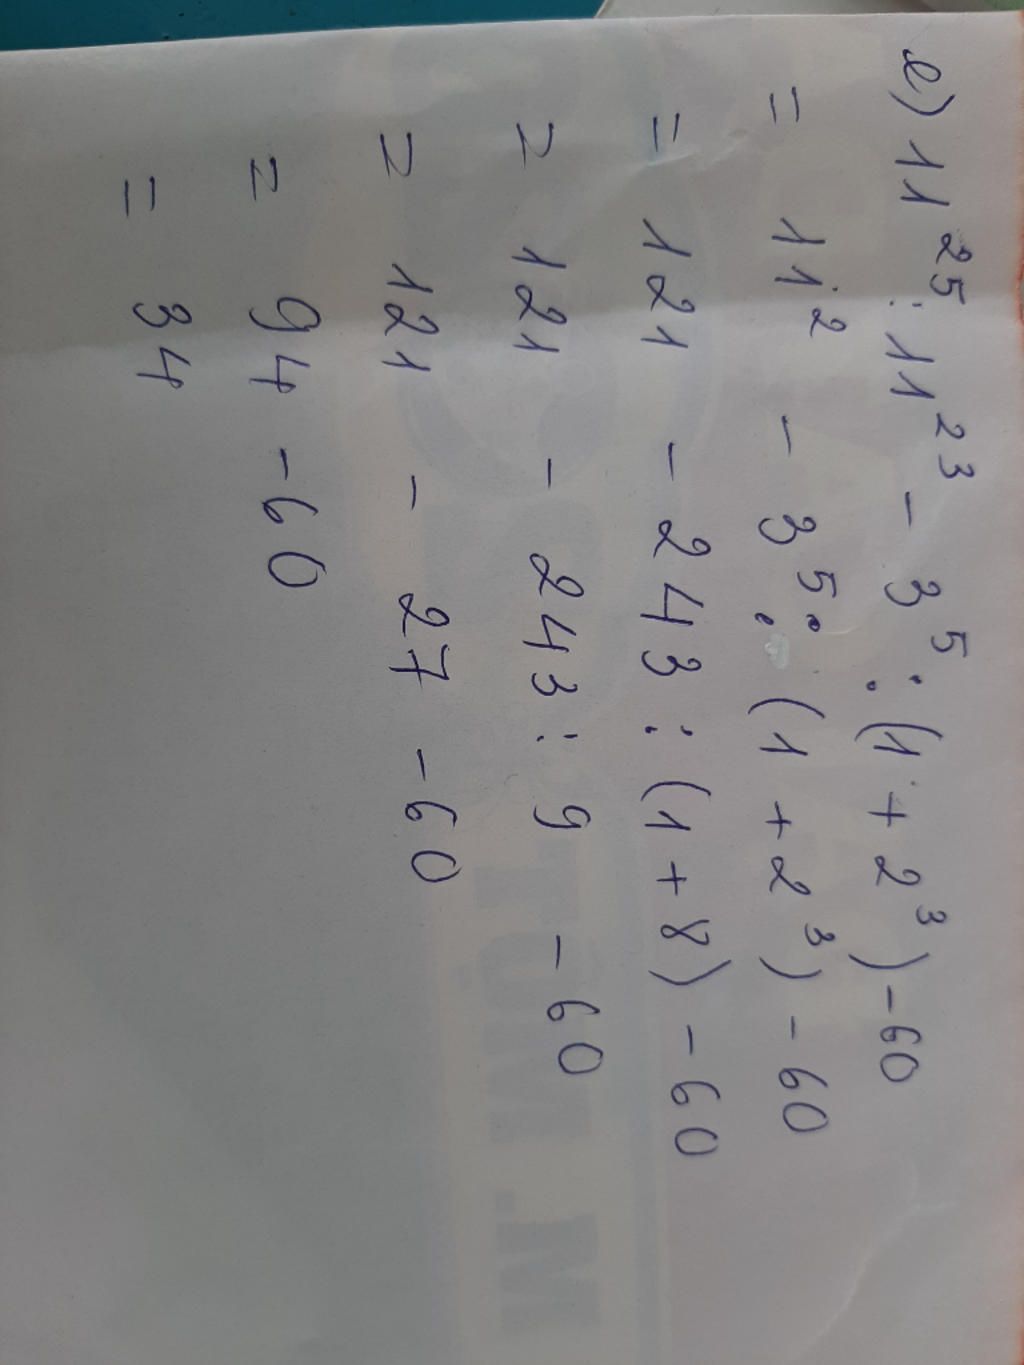 e) 11²⁵ : 11²³ - 3⁵ : (1 + 2³) - 60
= 11² - 3⁵ : (1 + 2³) - 60
= 121 - 243 : (1 + 8) - 60
= 121 - 243 : 9 - 60
= 121 - 27 - 60
= 94 - 60
= 34